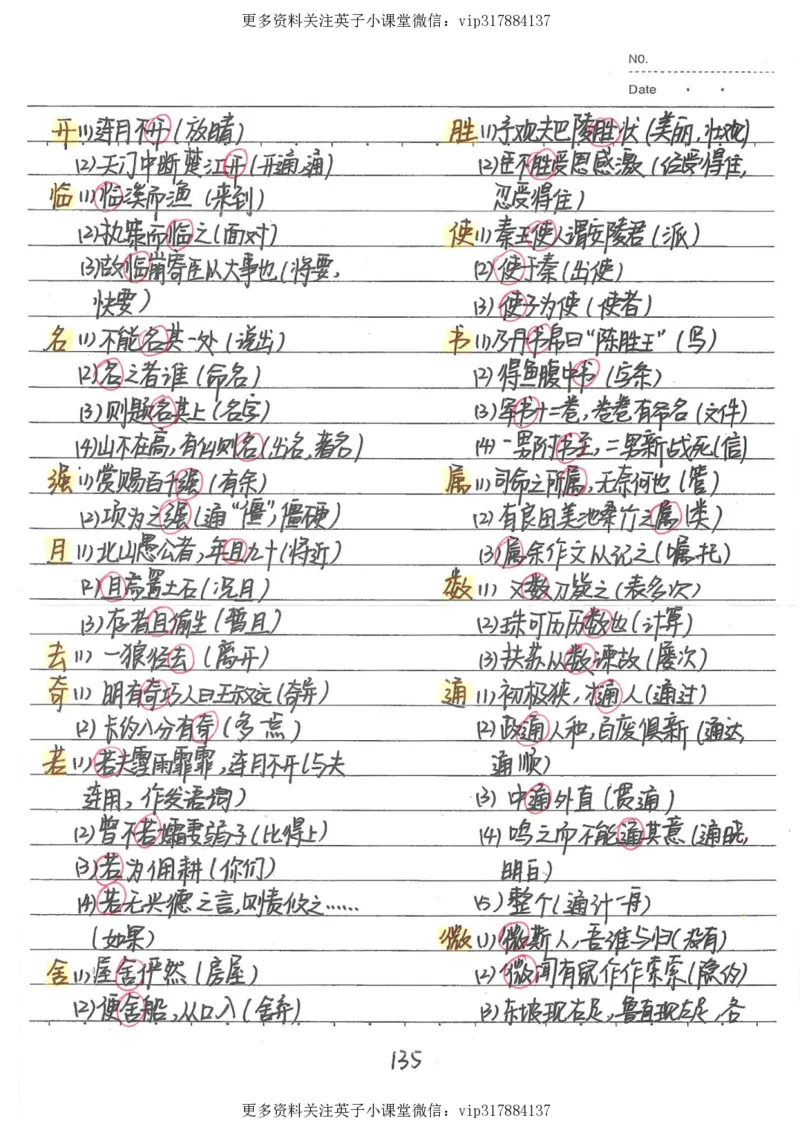 更多资料关注英子小课堂微信：vip317884137
NO.
Date
开 (1)连月不开(放晴)
(2)天门中断楚江开(开通,通)
临 (1)临溪而渔(来到)
(2)执策而临之(面对)
(3)故临崩寄臣以大事也(将要,
快要)
名 (1)不能名其一处(说出)
(2)名之者谁(命名)
(3)则题名其上(名字)
(4)山不在高,有仙则名(出名,著名)
强 (1)赏赐百千强(有余)
(2)项为之强(通“僵”,僵硬)
且 (1)北山愚公者,年且九十(将近)
(2)且焉置土石(况且)
(3)存者且偷生(暂且)
去 (1)一狼径去(离开)
奇 (1)明有奇巧人曰王叔远(奇异)
(2)长约八分有奇(多一点)
若 (1)若夫霪雨霏霏,连月不开(与夫
连用,作发语词)
(2)曾不若孀妻弱子(比得上)
(3)若为佣耕(你们)
(4)若无兴德之言,则责攸之……
(如果)
舍 (1)屋舍俨然(房屋)
(2)便舍船,从口入(舍弃)
胜 (1)予观夫巴陵胜状(美丽,壮观)
(2)臣不胜受恩感激(经受得住,
忍受得住)
使 (1)秦王使人谓安陵君(派)
(2)使于秦(出使)
(3)使子为使(使者)
书 (1)乃丹书帛曰“陈胜王”(写)
(2)得鱼腹中书(字条)
(3)军书十二卷,卷卷有命名(文件)
(4)一男附书至,二男新战死(信)
属 (1)司命之所属,无奈何也(管)
(2)有良田美池桑竹之属(类)
(3)属余作文以记之(嘱托)
数 (1)又数刀毙之(表多次)
(2)珠可历历数也(计算)
(3)扶苏以数谏故(屡次)
通 (1)初极狭,才通人(通过)
(2)政通人和,百废俱新(通达,
通顺)
(3)中通外直(贯通)
(4)鸣之而不能通其意(通晓,
明白)
(5)整个(通计一舟)
微 (1)微斯人,吾谁与归(没有)
(2)微闻有鼠作作索索(隐约)
(3)东坡现右足,鲁直现左足,各
135
更多资料关注英子小课堂微信：vip317884137